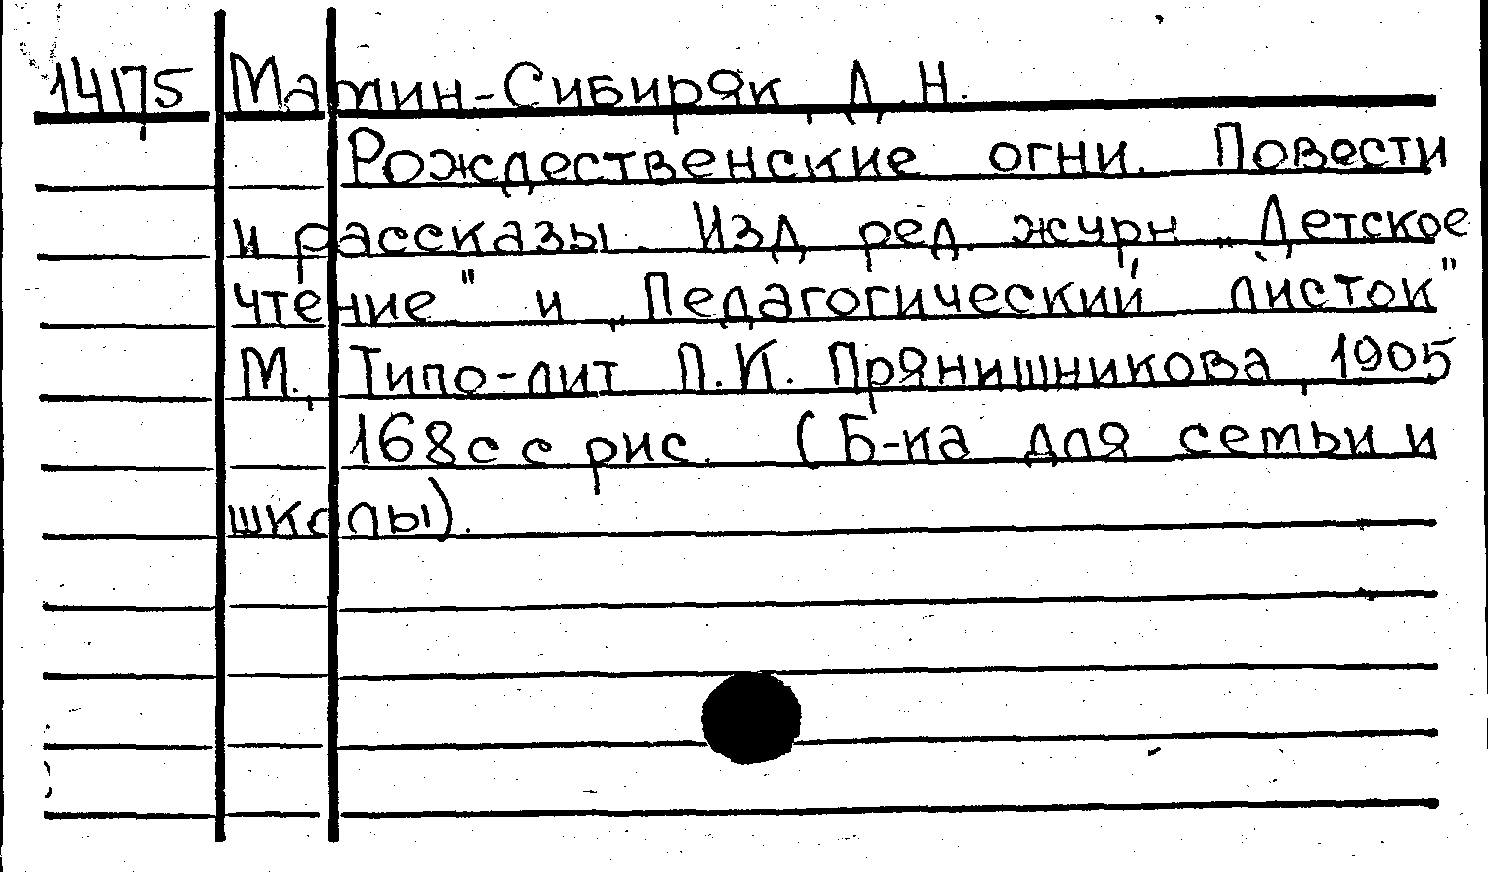 14175 Мамин-Сибиряк, Д.Н.
Рождественские огни. Повести
и рассказы. Изд. ред. журн. „Детское
чтение" и „Педагогический листок"
М., Типо-лит. П.И. Прянишникова, 1905
168 с с рис. (Б-ка для семьи и
школы).